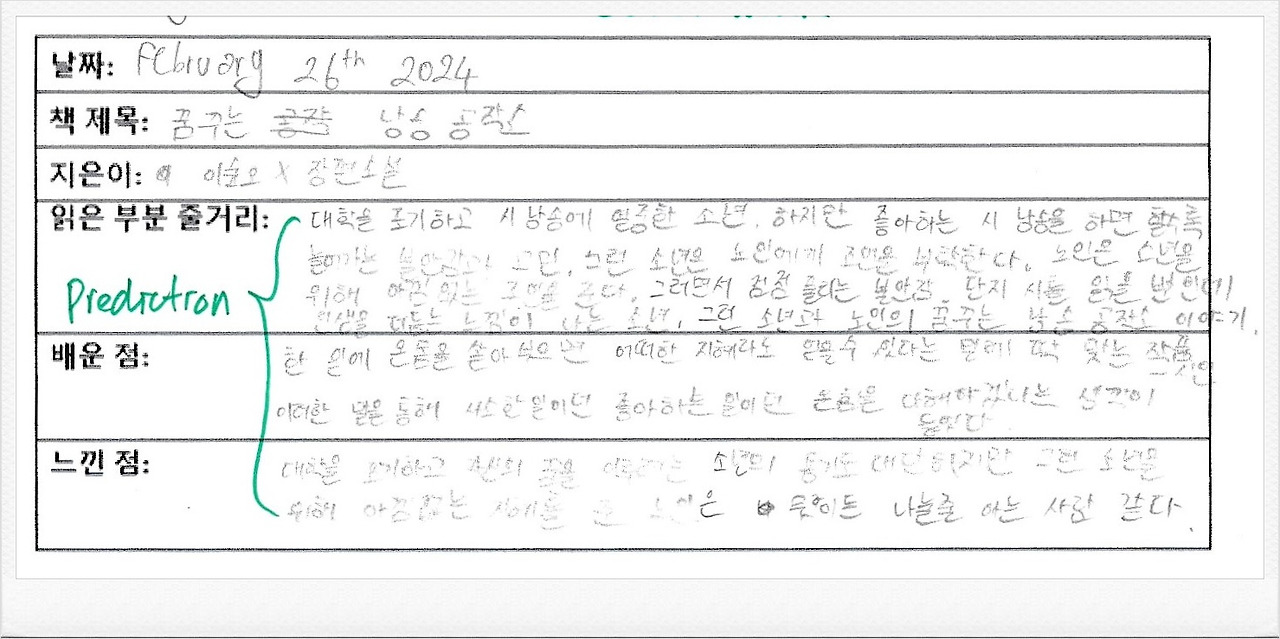 날짜: February 26th 2024
책 제목: 꿈꾸는 공작 낭송 공작소
지은이: 이숲오 X 장편소설
읽은 부분 줄거리: 대학을 포기하고 시 낭송에 열중한 소년. 하지만 좋아하는 시 낭송을 하면 할수록
늘어가는 불안감과 고민. 그런 소년은 노인에게 조언을 부탁한다. 노인은 소년을
Prediction
위해 아낌 없는 조언을 준다. 그러면서 점점 줄다는 불안감. 단지 시를 읽을 뿐인데
인생을 떠드는 느낌이 나는 소년. 그런 소년과 노인의 꿈꾸는 낭송 공작소 이야기.
배운 점: 한 일에 온 힘을 쏟아 어떠한 지혜라도 얻을 수 있다는 말에 딱 맞는 작품
이러한 을 통해 사소한 일이던 좋아하는 일이던 다해야 생각이
들었다
느낀 점: 대학을 포기하고 자신의 꿈을 소년의 용기도 하지만 그런 소년을
위해 아낌없는 지혜를 준 노인은 뜻이든 나눌줄 아는 사람 같다.